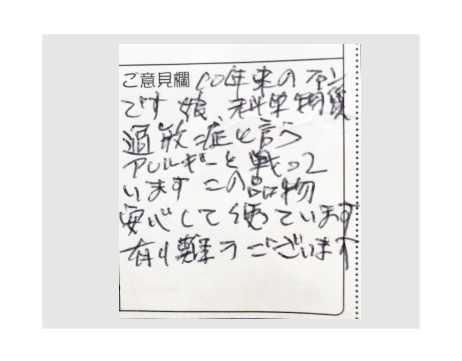 ご意見欄 〇〇年来の
です 娘 科学物質
過敏症と言う
アレルギーと戦って
います この品物
安心して使っています
有り難うございます